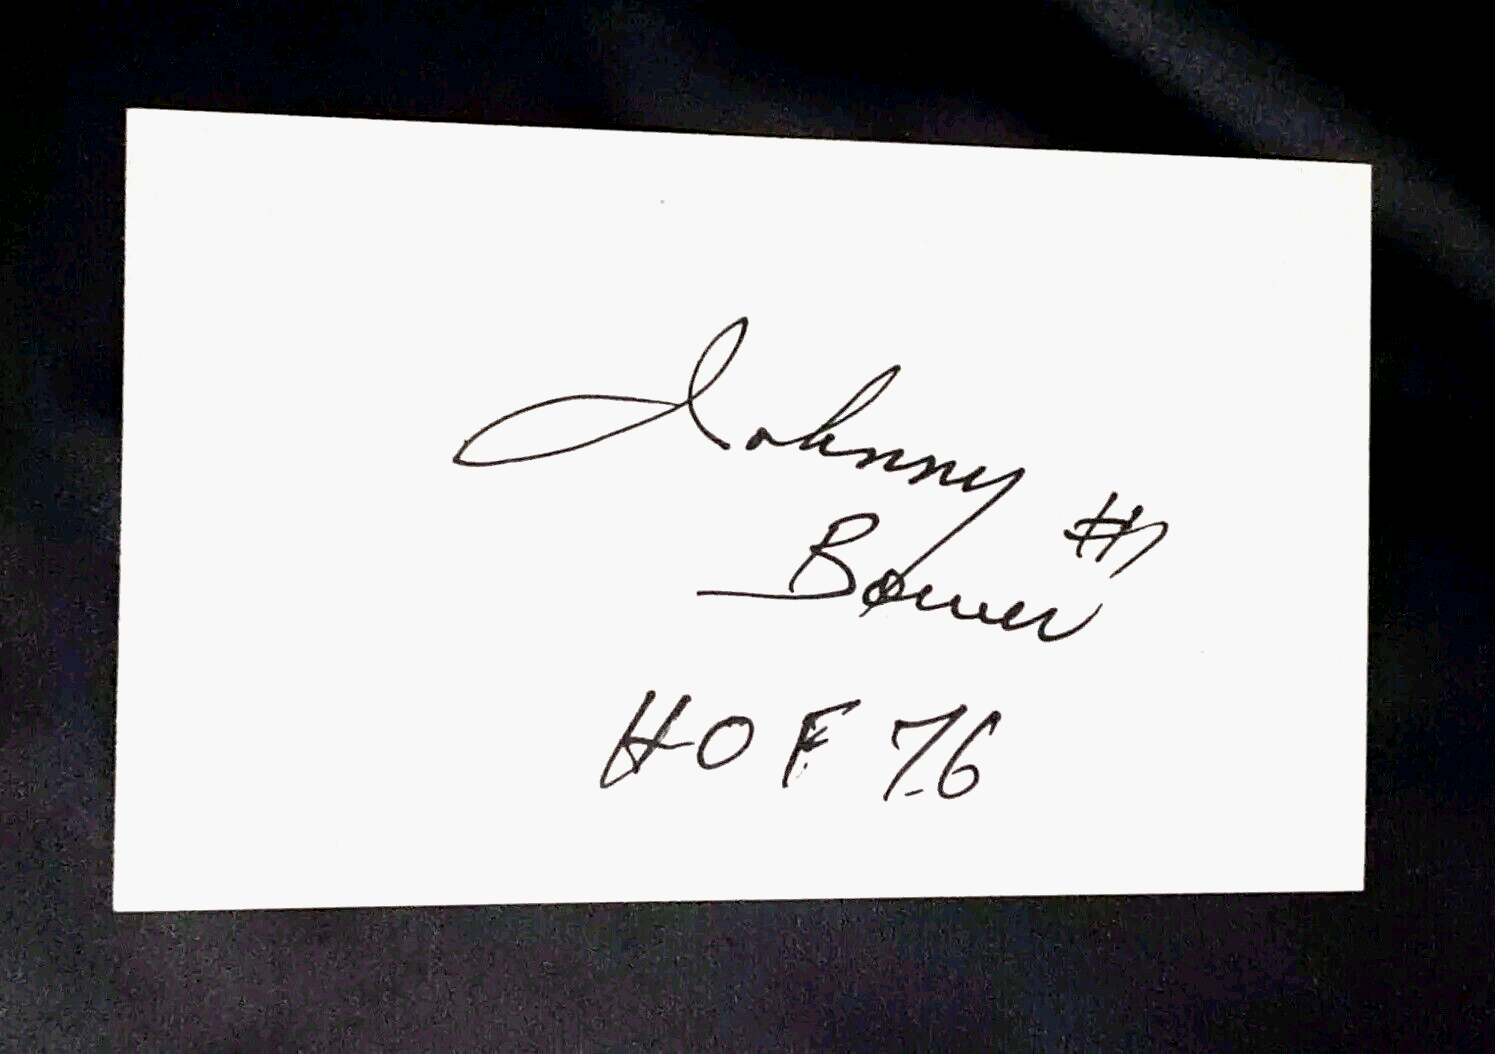 Johnny
Bower #1
HOF 76